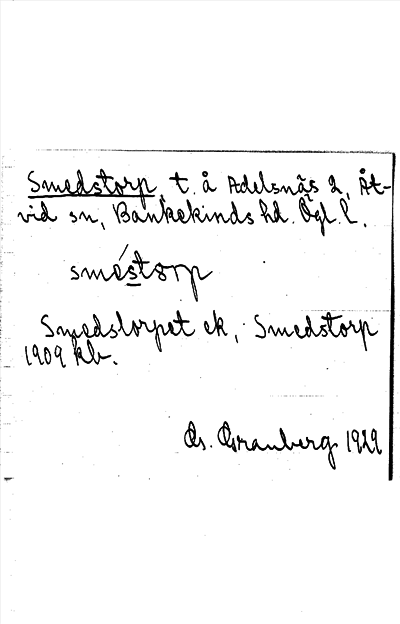 Smedstorp, t. å Adelsnäs 2, Åt-
vid sn, Bankekinds hd. Ögl. l.
sméstorp
Smedstorpet ek, Smedstorp
1909 kb.
Gs. Granberg 1929